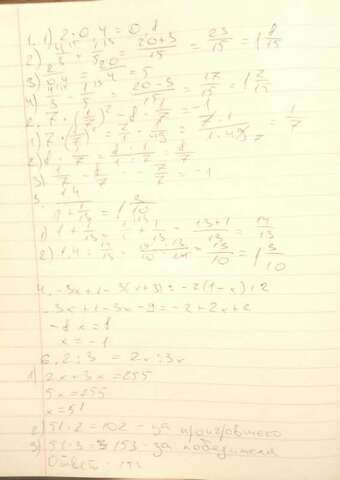 1. 1) 2·0,4 = 0,8
2) 4/3 + 1/5 = (20+3)/15 = 23/15 = 1 8/15
3) 2/0,4 = 20/4 = 5
4) 4/3 - 1/5 = (20-3)/15 = 17/15 = 1 2/15
2. 7·(1/7)² - 8·1/7 = -1
1) 7·(1/7)² = 7/1 · 1/49 = 7·1/1·49 = 1/7
3) 1/7 - 8/7 = -7/7 = -1
3. 1,4/(1+1/13) = 1 3/10
1) 1+1/13 = 1/1+1/13 = (13+1)/13 = 14/13
2) 1,4 : 14/13 = 14·13/10·14 = 13/10 = 1 3/10
4. -3x+1-3(x+3) = -2(1-x)+2
-3x+1-3x-9 = -2+2x+2
-8x = 8
x = -1
6. 2:3 = 2x:3x
1) 2x+3x = 255
5x = 255
x = 51
2) 51·2 = 102 - за проигравшего
3) 51·3 = 153 - за победителя
Ответ: 153